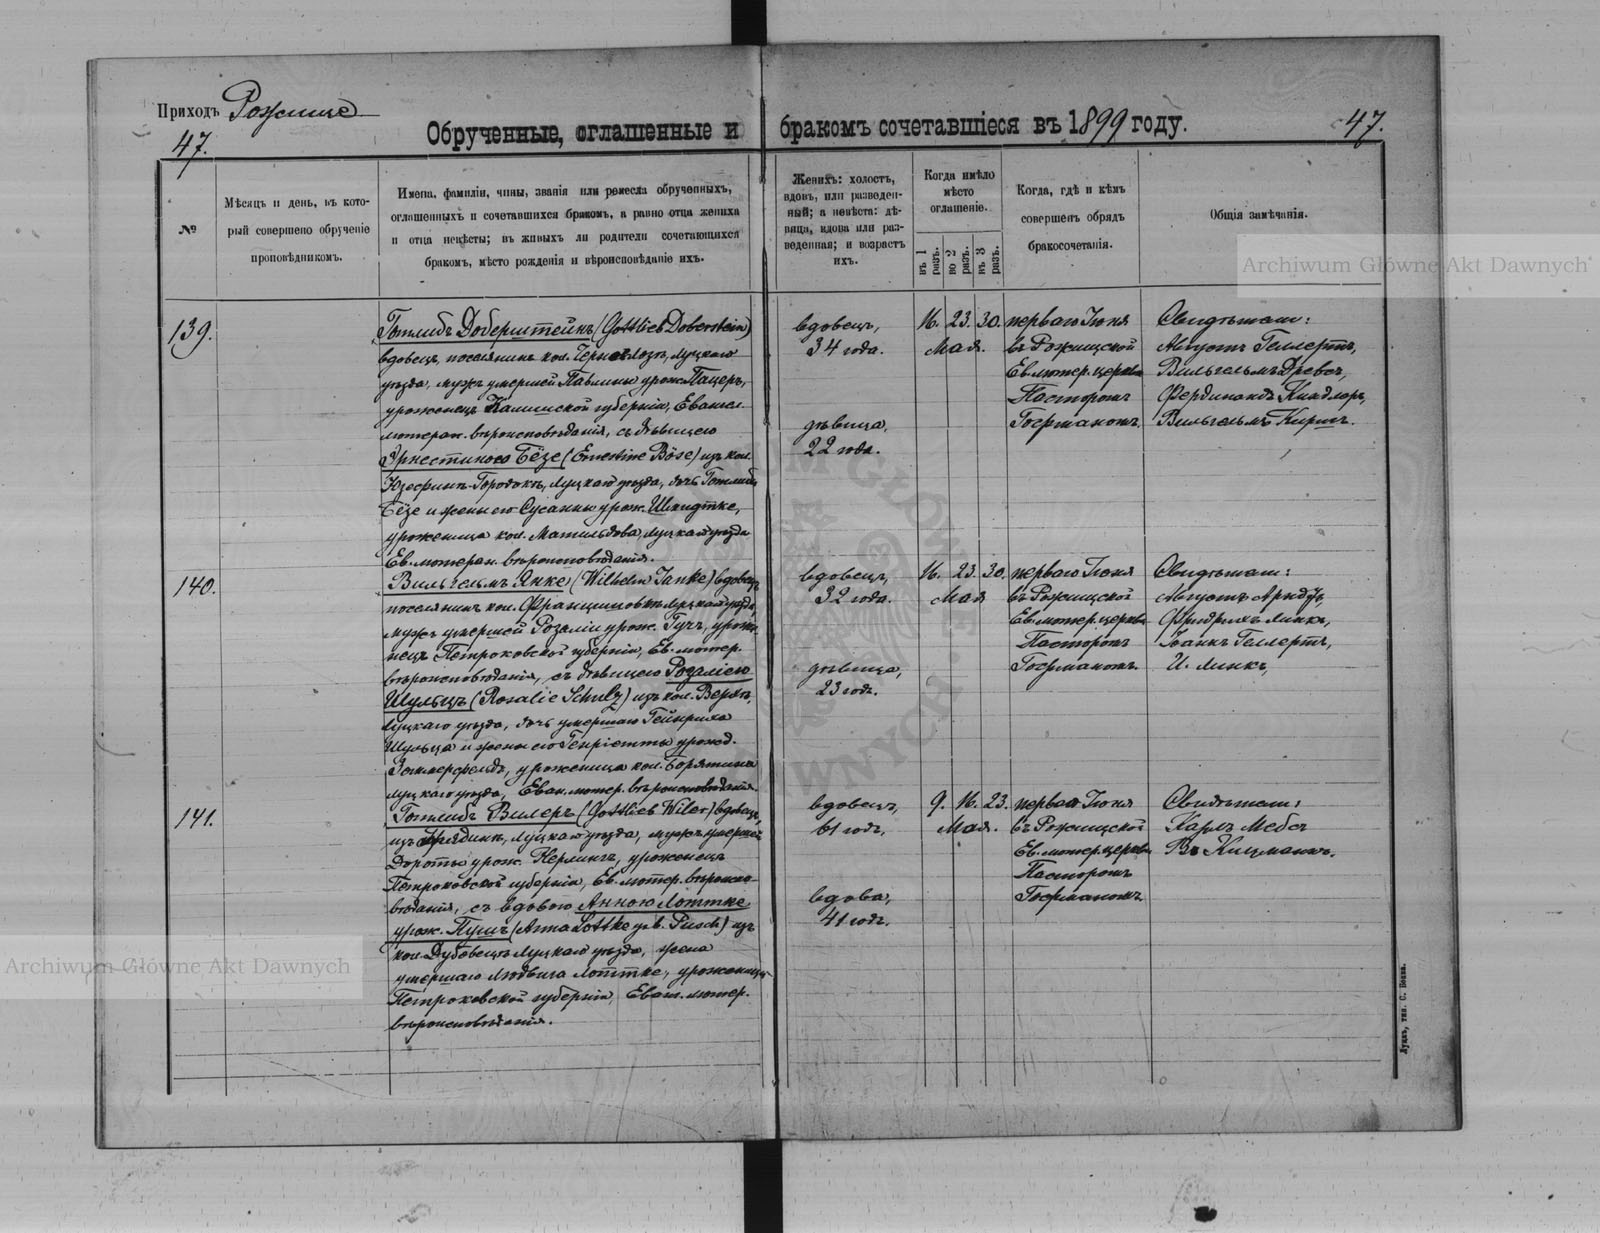 Приходъ Рожище
47.
Обрученные, оглашенные и бракомъ сочетавшіеся въ 1899 году.
47.
№
Мѣсяцъ и день, въ кото-
рый совершено обрученіе
проповѣдникомъ.
Имена, фамиліи, чины, званія или ремесла обрученныхъ,
оглашенныхъ и сочетавшихся бракомъ, а равно отца жениха
и отца невѣсты; въ живыхъ ли родители сочетающихся
бракомъ, мѣсто рожденія и вѣроисповѣданіе ихъ.
Женихъ: холостъ,
вдовъ, или разведен-
ный; а невѣста: дѣ-
вица, вдова или раз-
веденная; и возрастъ
ихъ.
Когда имѣло
мѣсто
оглашеніе.
въ 1 разъ.
во 2 разъ.
въ 3 разъ.
Когда, гдѣ и кѣмъ
совершенъ обрядъ
бракосочетанія.
Общія замѣчанія.
Archiwum Główne Akt Dawnych
139.
Готлибъ Доберштейнъ (Gottlieb Doberstein)
вдовецъ, поселянинъ кол. Луцкаго
уѣзда, мужъ умершей Павлины урож. Пацеръ,
уроженецъ Калишской губерніи, Евангел.
лютеран. вѣроисповѣданія, съ дѣвицею
Эрнестиною Бёзе (Ernestine Böse) изъ кол.
Юзефинъ-Городокъ, Луцкаго уѣзда, дочь Готлиба
Бёзе и жены его Сусанны урож. Шмидтке,
уроженица кол. Матильдова, Луцкаго уѣзда
Ев. лютеран. вѣроисповѣданія.
вдовецъ,
34 года.
дѣвица,
22 года.
16. 23. 30.
Мая.
перваго Іюня
въ Рожищской
Ев. лютер. церкви
Пасторомъ
Госрманомъ.
Свидѣтели:
Августъ Геллертъ,
Вильгельмъ Древсъ,
Фердинандъ Киндлеръ,
Вильгельмъ Киршъ.
140.
Вильгельмъ Янке (Wilhelm Janke) вдовецъ
поселянинъ кол. Францишовка Луцкаго уѣзда,
мужъ умершей Розаліи урож. Гучъ, уроже-
нецъ Петроковской губерніи, Ев. лютер.
вѣроисповѣданія, съ дѣвицею Розаліею
Шульцъ (Rosalie Schulz) изъ кол. Верхъ,
Луцкаго уѣзда, дочь умершаго Гейнриха
Шульца и жены его Генріетты урожд.
Зоммерфельдъ, уроженица кол. Борятина
Луцкаго уѣзда, Еван. лютер. вѣроисповѣданія.
вдовецъ,
32 года.
дѣвица,
23 годъ.
16. 23. 30.
Мая
перваго Іюня
въ Рожищской
Ев. лютер. церкви
Пасторомъ
Госрманомъ.
Свидѣтели:
Августъ Арндтъ,
Фридрихъ Линкъ,
Геллертъ,
И. Линкъ,
141.
Готлибъ Вилеръ (Gottlieb Wiler) вдовецъ,
изъ Луцкаго уѣзда, мужъ умершей
Доротеи урож. Керлингъ, уроженецъ
Петроковской губерніи, Ев. лютер. вѣроиспо-
вѣданія, съ вдовою Анною Лоттке
урож. Пушъ (Anna Lottke geb. Pusch) изъ
кол. Дубовецъ Луцкаго уѣзда, жена
умершаго Людвига Лоттке, уроженица
Петроковской губерніи, Еван. лютер.
вѣроисповѣданія.
вдовецъ,
61 годъ,
вдова,
41 годъ.
9. 16. 23.
Мая.
перваго Іюня
въ Рожищской
Ев. лютер. церкви
Пасторомъ
Госрманомъ
Свидѣтели:
Карлъ Мебсъ
В. Кицманъ.
Archiwum Główne Akt Dawnych
Луцкъ, тип. С. Бокса.